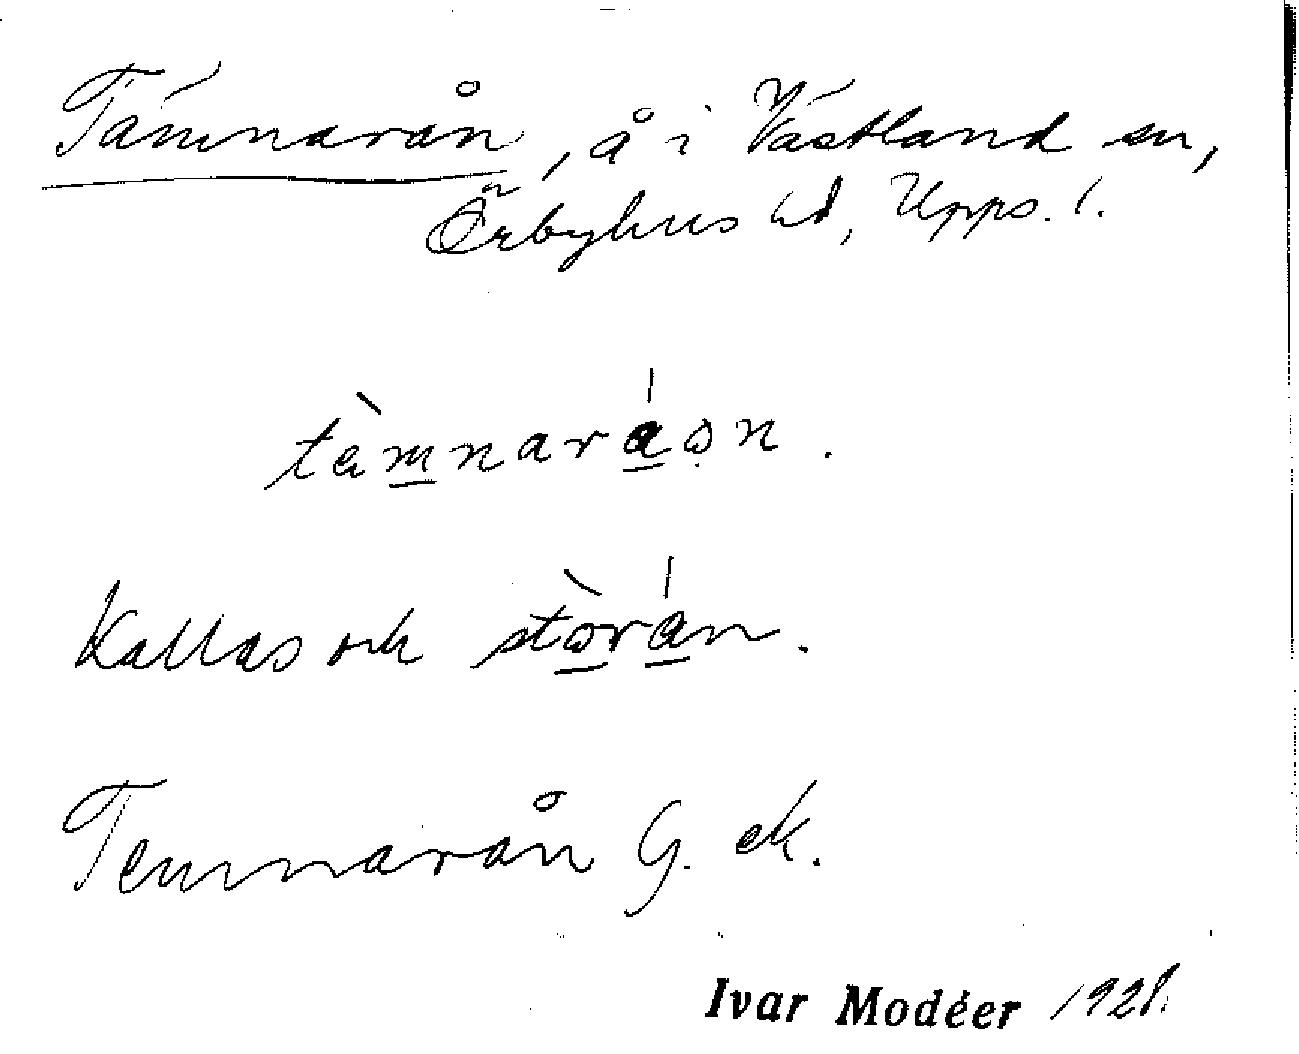 Tämnarån, å i Västland sn,
Örbyhus hd, Upps. l.
tä̀mnaráən.
Kallas och stòrán.
Temnarån G. ek.
Ivar Modéer 1921.